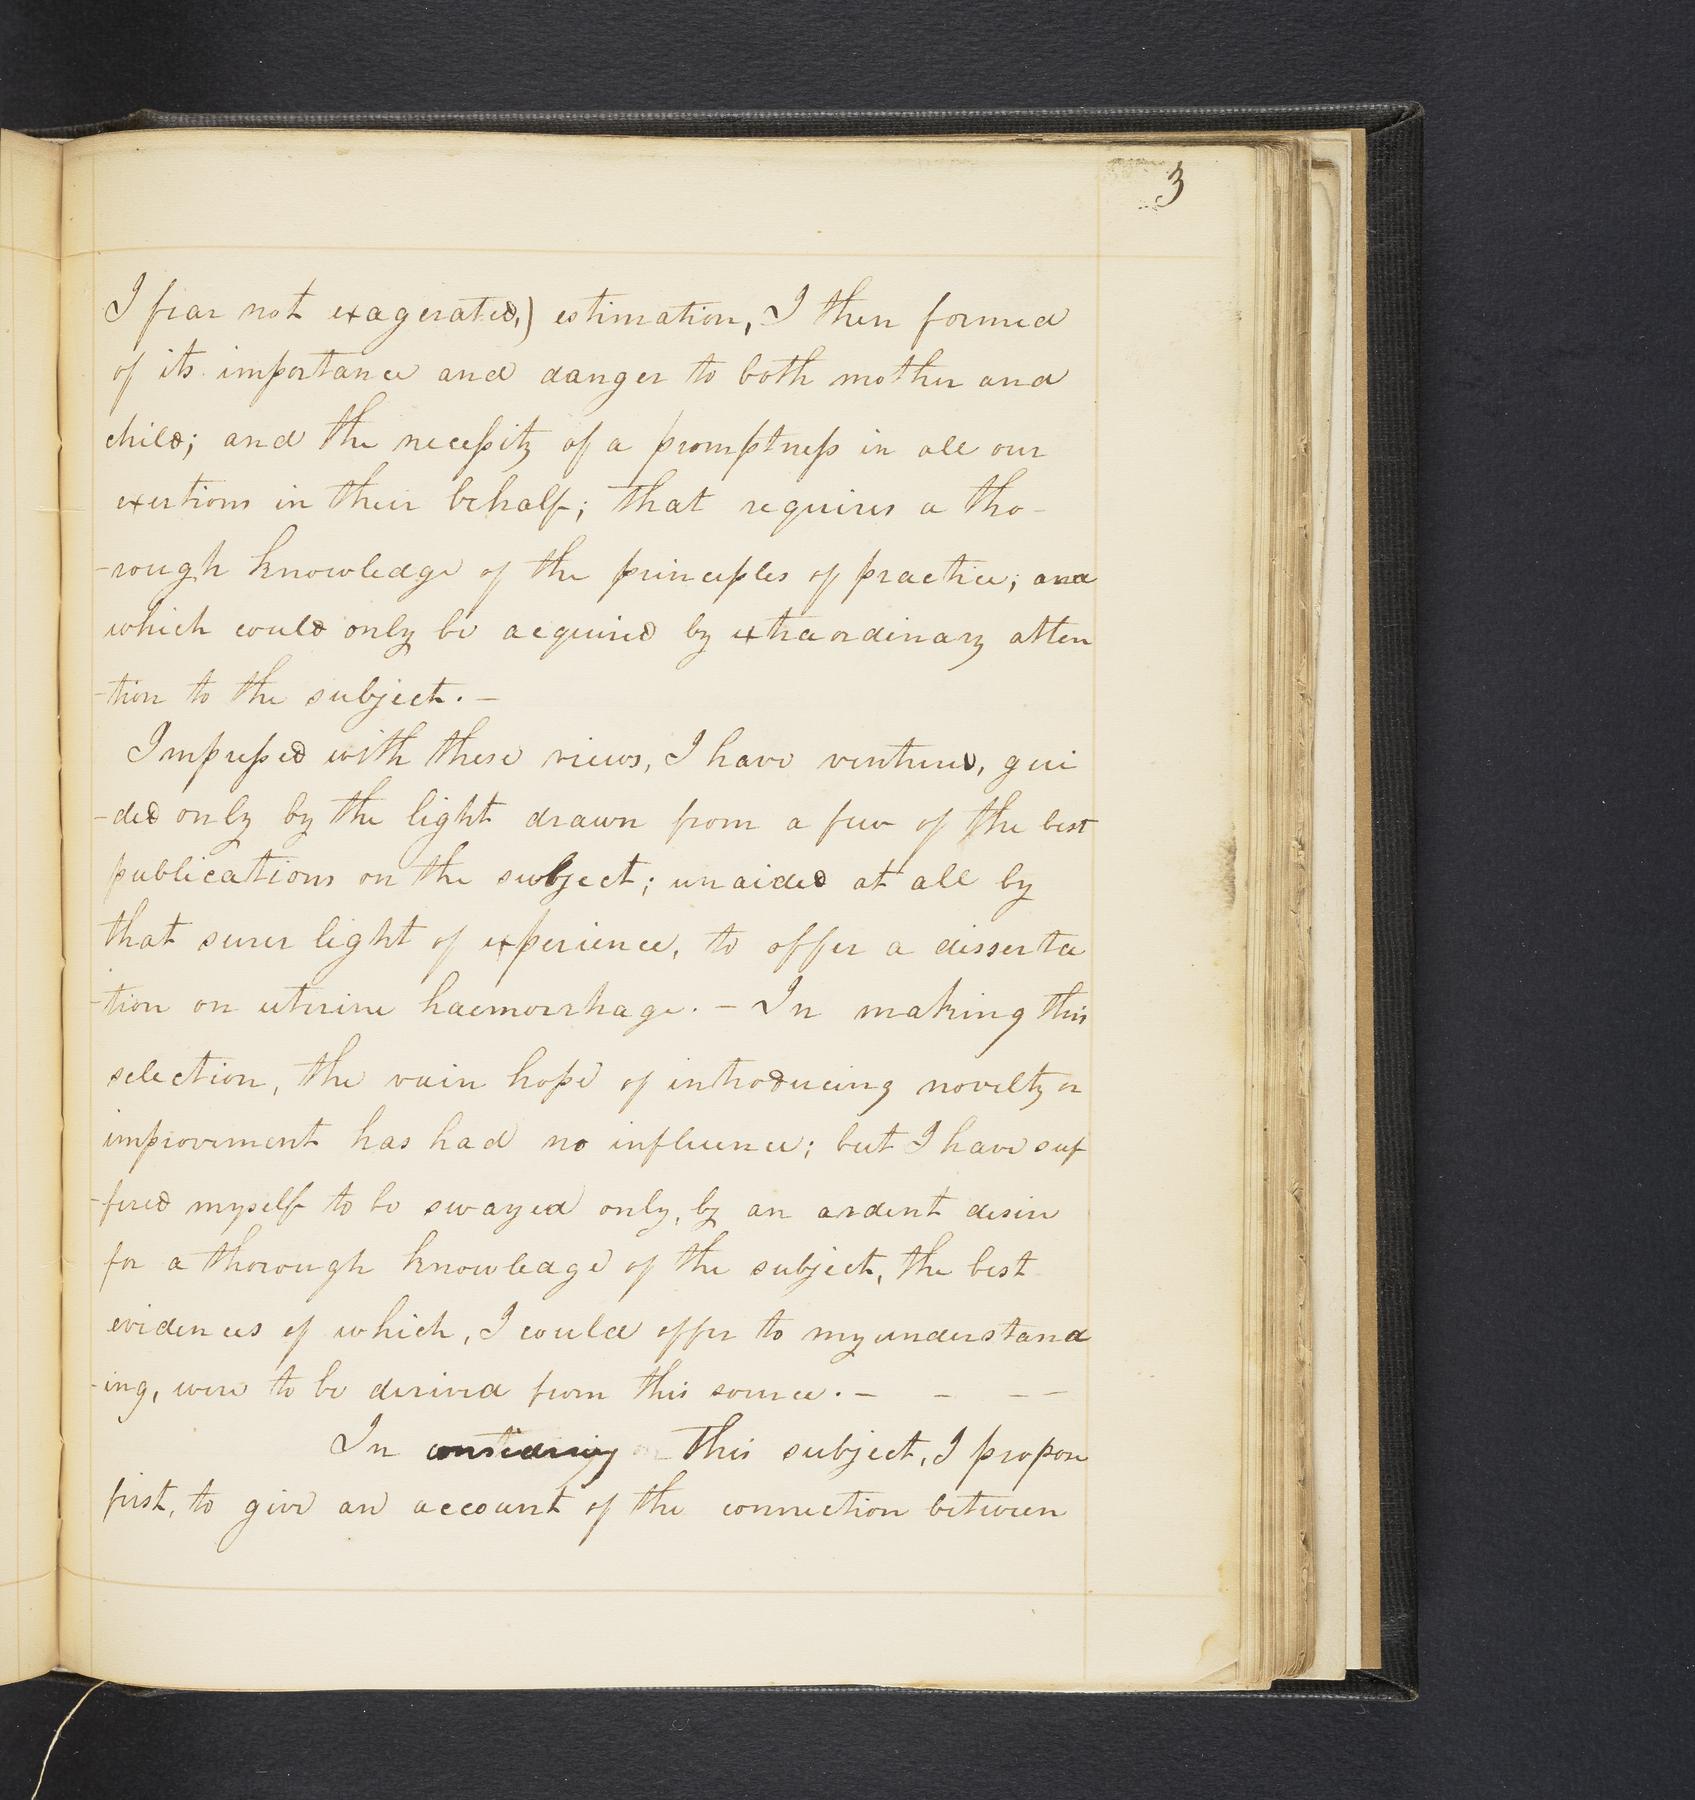 3
I fear not exagerated,) estimation, I then formed
of its importance and danger to both mother and
child; and the necessity of a promptness in all our
exertions in their behalf; that requires a tho-
-rough knowledge of the principles of practice; and
which could only be acquired by extraordinary atten
-tion to the subject. -
Impressed with these views, I have ventured, gui
-ded only by the light drawn from a few of the best
publications on the subject; unaided at all by
that surer light of experience, to offer a disserta
-tion on uterine haemorrhage. - In making this
selection, the vain hope of introducing novelty or
improvement has had no influence; but I have suf
-fered myself to be swayed only, by an ardent desire
for a thorough knowledge of the subject, the best
evidences of which, I could offer to my understand
-ing, were to be derived from this source. - - - -
In considering this subject, I propose
first, to give an account of the connection between